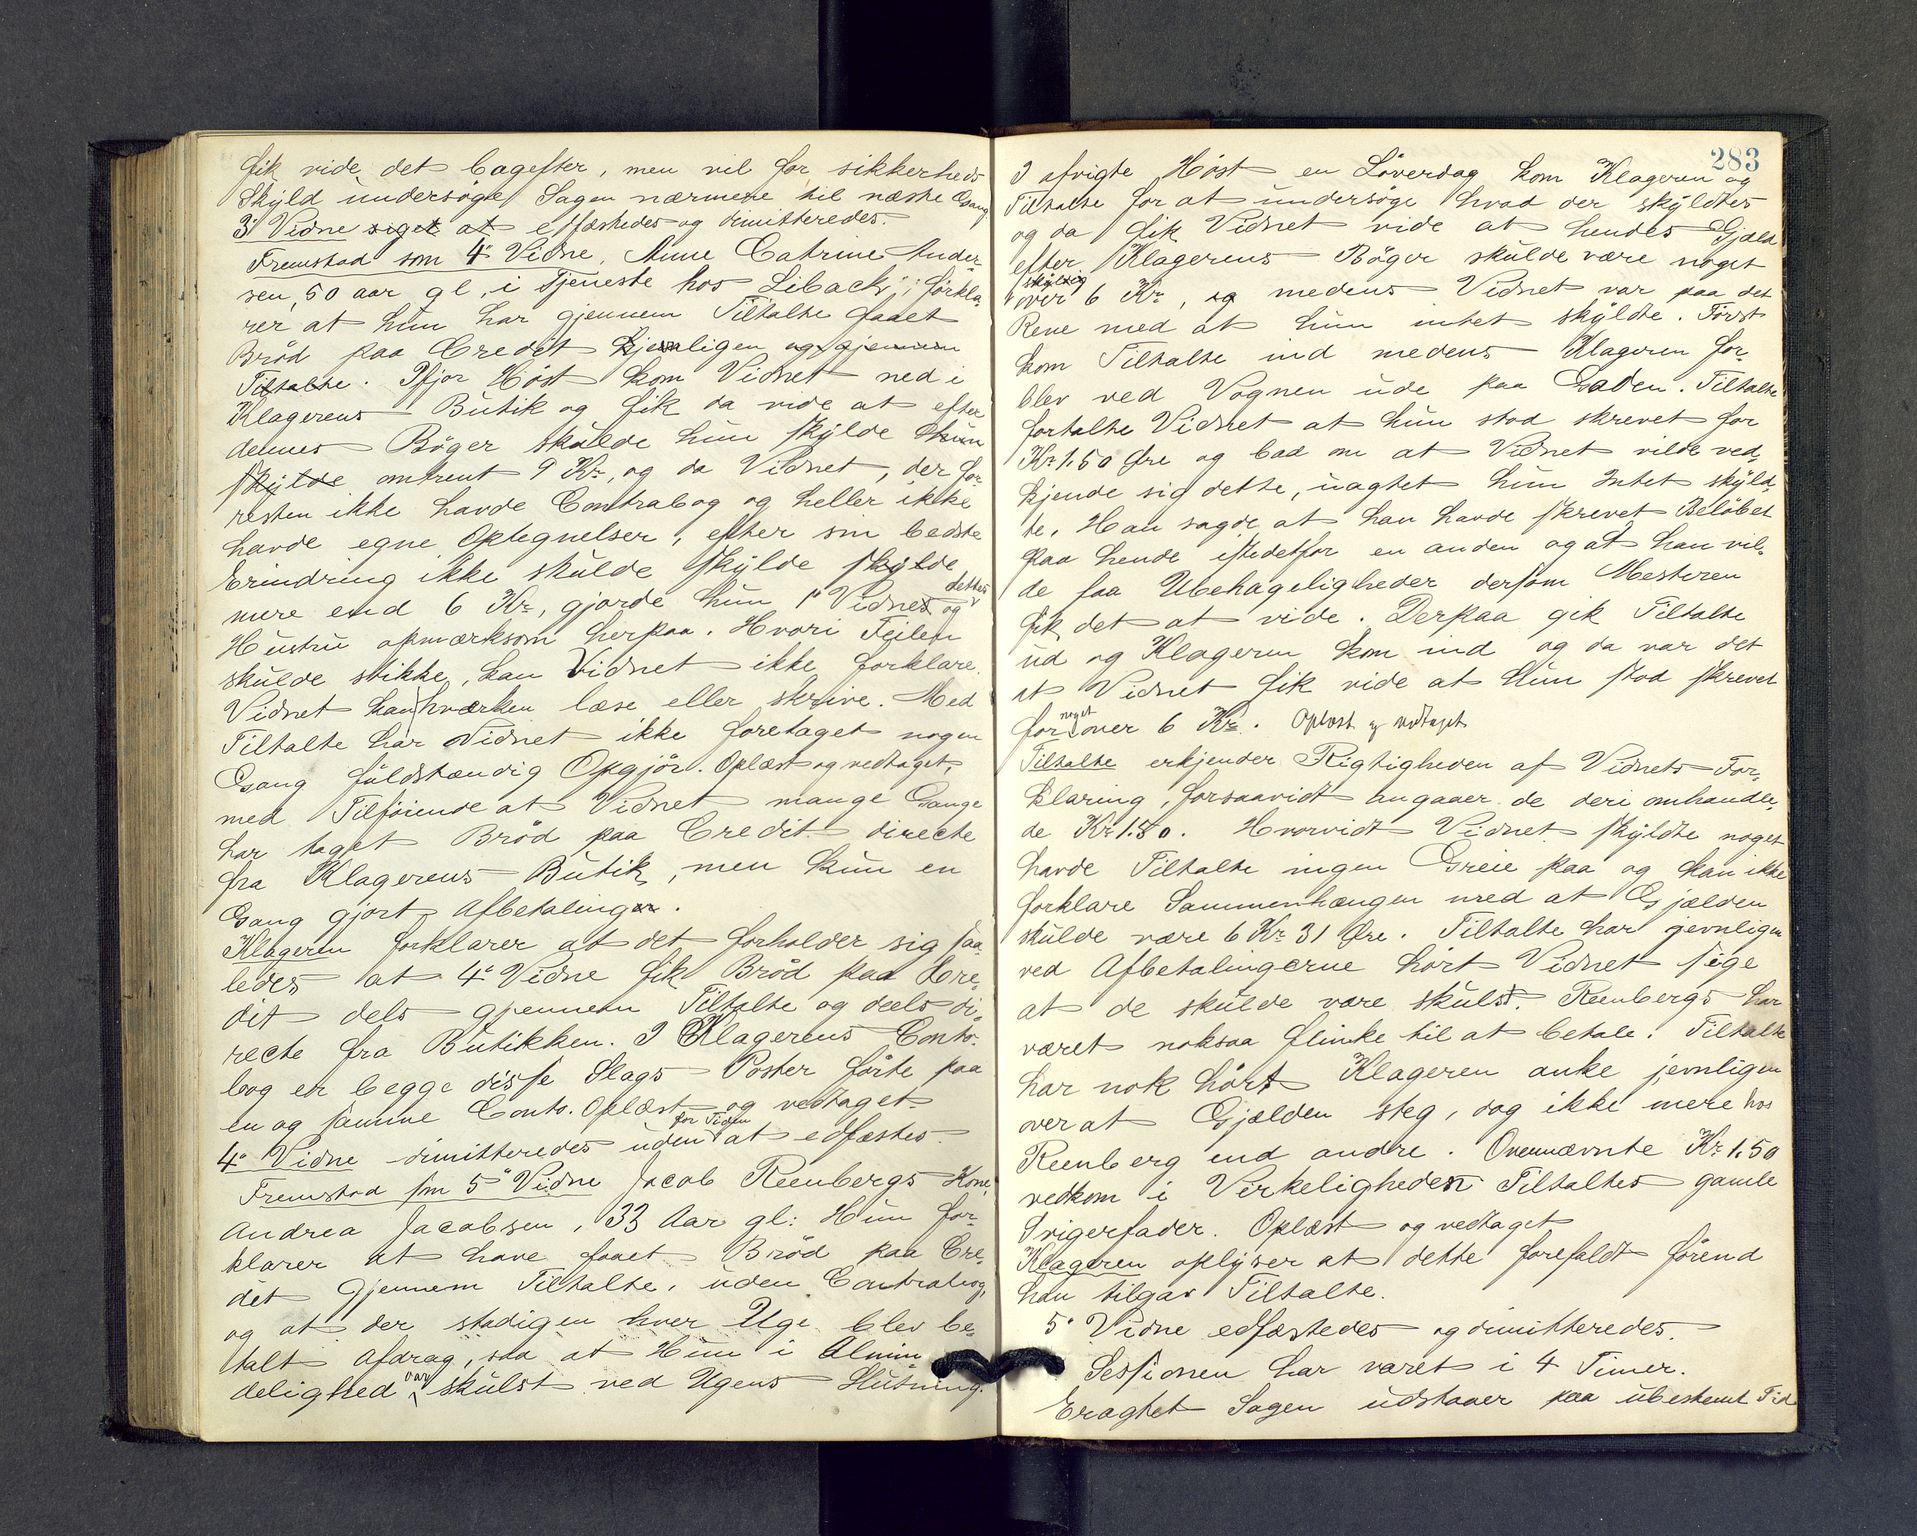 fik vide det bagefter, men vil for sikkerheds
Skyld undersøge Sagen nærmere til næste Gang
3' Vidne siget at edfæstedes og dimitteredes.
Fremstod som 4' Vidne, Anne Catrine Ander-
sen, 50 aar gl, i Tjeneste hos Libach; forkla-
rer at hun har gjennem Tiltalte faaet
Brød paa Credit kjevnligen og gjennem
Tiltalte. Ifjor Høst kom Vidnet ned i
Klagerens Butik og fik da vide at efter
dennes Bøger skulde hun skylde hun
skylde omtrent 9 Kr, og da Vidnet, der for-
resten ikke havde Contrabog og heller ikke
havde egne Optegnelser, efter sin bedste
Erindring ikke skulde skylde skylde
mere end 6 Kr, gjorde hun 1' Vidnes og dettes
Hustru opmærksom herpaa. Hvori Feilen
skulde stikke, kan Vidnet ikke forklare.
Vidnet kan hværken læse eller skrive. Med
Tiltalte har Vidnet ikke foretaget nogen
Gang fuldstændig Opgjør. Oplæst og vedtaget,
med Tilføiende at Vidnet mange Gange
har taget Brød paa Credit directe
fra Klagerens Butik, men kun en
Gang gjort Afbetalinger.
Klageren forklarer at det forholder sig saa-
ledes at 4' Vidne fik Brød paa Cre-
dit dels gjennem Tiltalte og deels di-
recte fra Butikken. I Klagerens Conto-
bog er begge disse Slags Poster førte paa
en og samme Conto. Oplæst og vedtaget.
4' Vidne dimitteredes uden for Tiden at edfæstes.
Fremstod som 5' Vidne Jacob Reenbergs Kone,
Andrea Jacobsen, 33 Aar gl: Hun for-
klarer at have faaet Brød paa Cre-
dit gjennem Tiltalte, uden Contrabog,
og at der stadigen hver Uge blev be-
talt Afdrag, saa at Hun i Almin-
delighed var skulst ved Ugens Slutning.
283
I afvigte Høst en Løverdag kom Klageren og
Tiltalte for at undersøge hvad der skyldtes
og da fik Vidnet vide at hendes Gjæld
efter Klagerens Bøger skulde være noget
skyldig
over 6 Kr, og medens Vidnet var paa det
Rene med at hun intet skyldte. Først
kom Tiltalte ind medens Klageren for-
blev ved Vognen ude paa Gaden. Tiltalte
fortalte Vidnet at hun stod skrevet for
Kr 1.50 Øre og bad om at Vidnet vilde ved-
kjende sig dette, uagtet hun Intet skyld-
te. Han sagde at han havde skrevet Beløbet
paa hende istedetfor en anden og at han vil-
de faa Ubehageligheder dersom Mesteren
fik det at vide. Derpaa gik Tiltalte
ud og Klageren kom ind og da var det
at Vidnet fik vide at hun stod skrevet
for noget over 6 Kr. Oplæst og vedtaget
Tiltalte erkjender Rigtigheden af Vidnets For-
klaring, forsaavidt angaaer de deri omhandle-
de Kr 1.50. Hvorvidt Vidnet skyldte noget
havde Tiltalte ingen Greie paa og kan ikke
forklare Sammenhængen med at Gjælden
skulde være 6 Kr 31 Øre. Tiltalte har jevnligen
ved Afbetalingerne hørt Vidnet sige
at de skulde være skulst. Reenbergs har
været noksaa flinke til at betale. Tiltalte
har nok hørt Klageren anke jevnligen
over at Gjælden steg, dog ikke mere hos
Reenberg end andre. Ovennævnte Kr 1.50
vedkom i Virkeligheden Tiltaltes gamle
Svigerfader. Oplæst og vedtaget
Klageren oplyser at dette forefaldt førend
han tilgav Tiltalte.
5' Vidne edfæstedes og dimitteredes.
Sessionen har været i 4 Timer.
Eragtet Sagen udstaaer paa ubestemt Tid